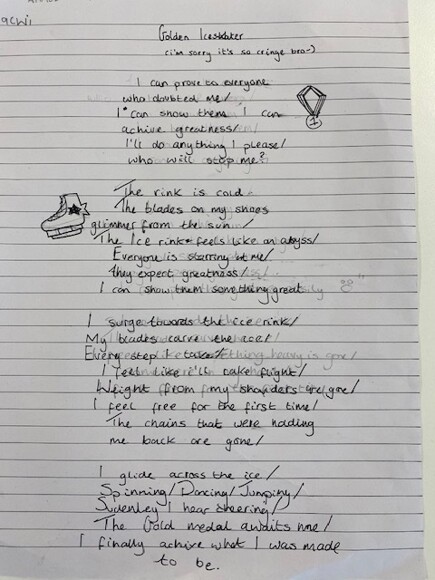 achi
Golden Iceskater
(i'm sorry it's so cringe bro~)
I can prove to everyone
who doubted me/
I can show them I can
achive greatness/
I'll do anything I please/
who will stop me?
1
The rink is cold
The blades on my shoes
glimmer from the sun
The Ice rink feels like an abyss/
Everyone is starring at me/
they expect greatness/
I can show them something great
I surge towards the ice rink/
My blades carve the ice/
Every step I take/
I feel like i'll take flight/
Weight from my sholders are gone/
I feel free for the first time/
The chains that were holding
me back are gone/
I glide across the ice/
Spinning/ Dancing/ Jumping/
Sudenley I hear cheering/
The Gold medal awaits me/
I finally achive what I was made
to be.